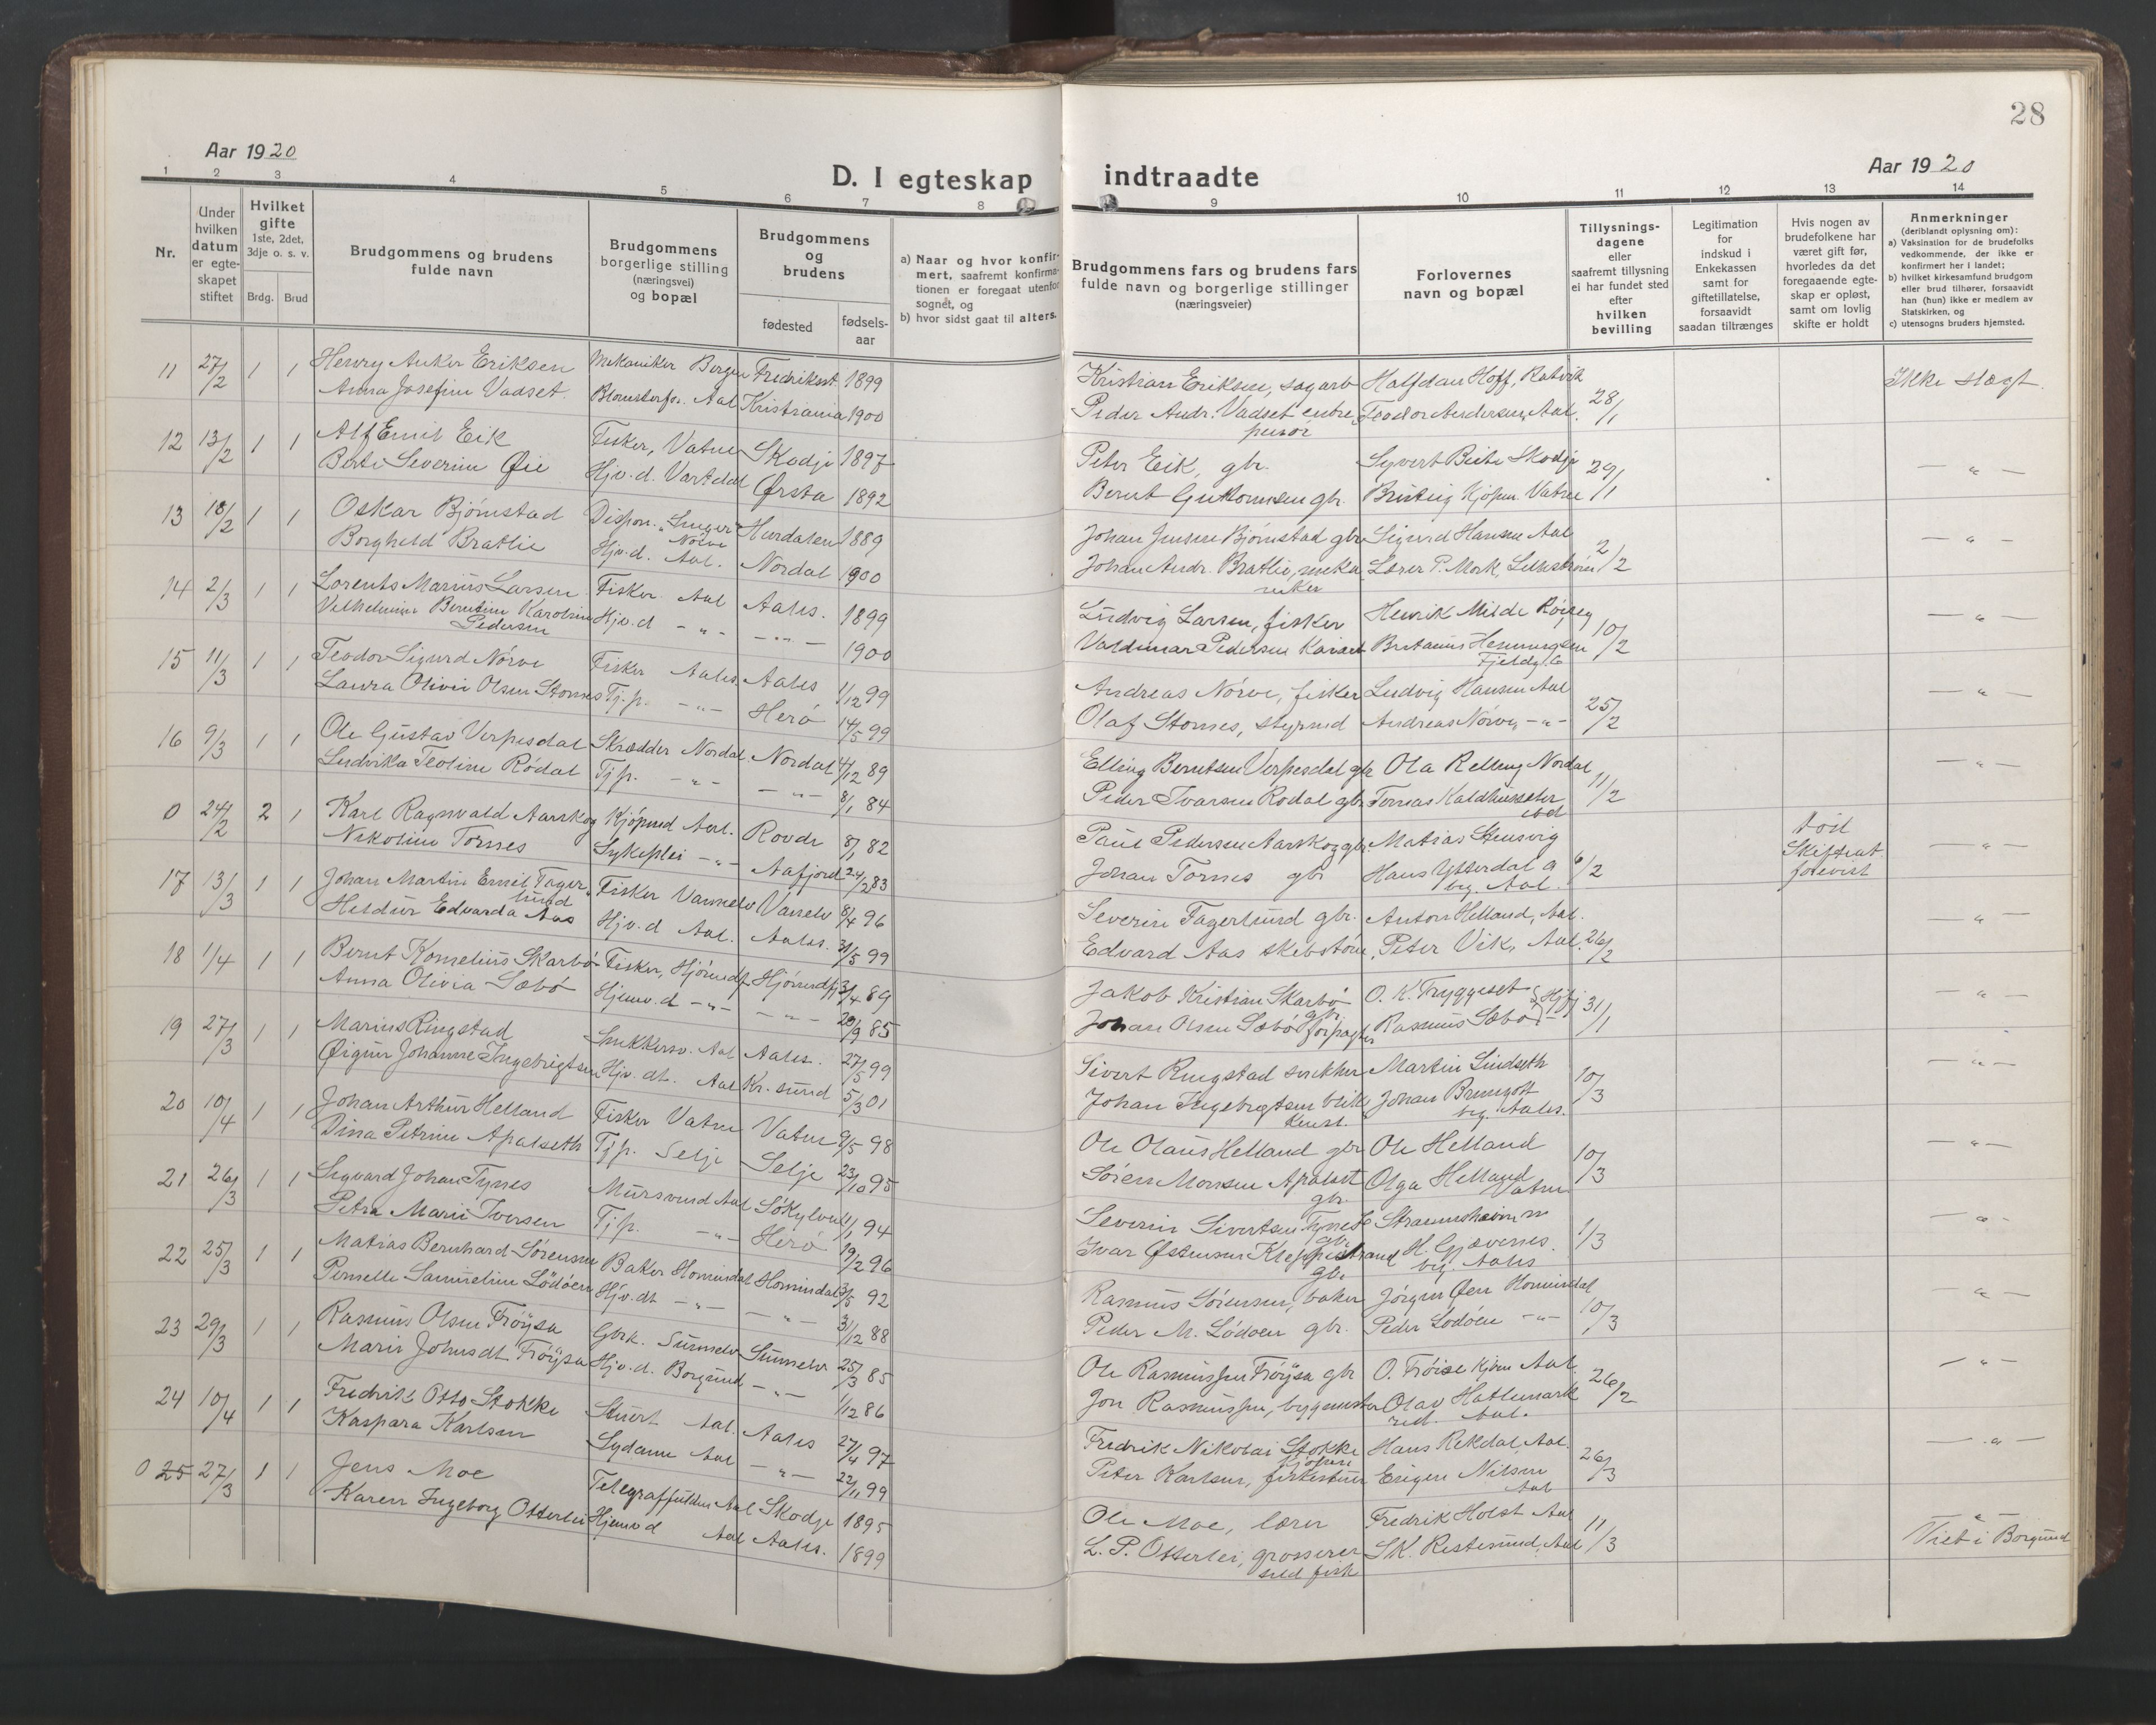 28
Aar 1920
Aar 1920
D. I egteskap indtraadte
1 2 3 4 5 6 7 8 9 10 11 12 13 14
Nr.
Under hvilken datum er egteskapet stiftet
Hvilket gifte 1ste, 2det, 3dje o. s. v.
Brdg. Brud
Brudgommens og brudens fulde navn
Brudgommens borgerlige stilling (næringsvei) og bopæl
Brudgommens og brudens
fødested
fødsels-aar
a) Naar og hvor konfirmert, saafremt konfirmationen er foregaat utenfor sognet, og
b) hvor sidst gaat til alters.
Brudgommens fars og brudens fars fulde navn og borgerlige stillinger (næringsveier)
Forlovernes navn og bopæl
Tillysningsdagene eller saafremt tillysning ei har fundet sted efter hvilken bevilling
Legitimation for indskud i Enkekassen samt for giftetillatelse, forsaavidt saadan tiltrænges
Hvis nogen av brudefolkene har været gift før, hvorledes da det foregaaende egteskap er opløst, samt om lovlig skifte er holdt
Anmerkninger
(deriblandt oplysning om):
a) Vaksination for de brudefolks vedkommende, der ikke er konfirmert her i landet;
b) hvilket kirkesamfund brudgom eller brud tilhører, forsaavidt han (hun) ikke er medlem av Statskirken, og
c) utensogns bruders hjemsted.
11 27/2 1 1 Henry Anker Eriksen Mekaniker Bergen Fredrikst. 1899 Kristian Eriksen, sagarb Halfdan Hoff, Ratvik 28/1 Ikke slægt.
Anna Josefine Vadset. Blomsterfor. Aal Kristiania 1900 Peder Andr. Vadset entre Teodor Andersen, Aal.
12 13/2 1 1 Alf Emil Eik Fisker, Vatne Skodje 1897 Peter Eik, gbr. Syvert Skodje 29/1 — " —
Berte Severine Øie Hjv.d. Vartdal Ørsta 1892 Bernt Guttormsen gbr. Kjøpm. Vatne
13 18/2 1 1 Oskar Bjørnstad Dispon. "Singer" Hurdalen 1889 Johan Jensen Bjørnstad gbr Sigurd Hansen Aal 2/2 — " —
Nørve
Borghild Bratlie Hjv.d. Aal. Nordal 1900 Johan Andr. Bratlie, meka Lærer P. Mork,
niker
14 2/3 1 1 Lorents Marius Larsen Fisker Aal Aales. 1899 Ludvig Larsen, fisker Henrik Milde 10/2 — " —
Vilhelmine Berntine Karoline Hjv.d — " — — " — 1900 Valdemar Pedersen Henningsen
Pedersen
15 11/3 1 1 Teodor Sigurd Nørve Fisker Aales. Aales 1/12 99 Andreas Nørve, fisker Ludvig Hansen Aal 25/2 — " —
Laura Olivie Olsen Stornes Tj.p. — " — Herø 14/5 99 Olaf Stornes, styrmd Andreas Nørve — " —
16 9/3 1 1 Ole Gustav Verpesdal Skrædder Nordal Nordal 4/12 89 Elling Berntsen Verpesdal gbr Ola Relling Nordal 11/2 — " —
Ludvika Teoline Rødal Tjp. — " — — " — 8/1 84 Peder Ivarsen Rødal gbr Tomas Kaldhusseter
ibd
0 24/2 2 1 Karl Ragnvald Aarskog Kjøpmd Aal. Rovde 8/1 82 Paul Pedersen Aarskog gbr. Matias Stensvig 6/2 Død — " —
Nikoline Tornes Sykeplei — " — Aafjord 24/2 83 Johan Tornes gbr Hans Ytterdal Skifteat. forevist
beg. Aal.
17 13/3 1 1 Johan Martin Emil Fager Fisker Vannelv 8/4 96 Severin Fagerlund gbr. Anton Helland, Aal. 26/2 — " —
lund
Heldur Edvarda Aas Hjv.d Aal. Aales. 31/5 99 Edvard Aas Peter Vik, Aal.
18 1/4 1 1 Bernt Kornelius Skarbø Fisker, Hjørundf. Hjørundfj 3/4 89 Jakob Kristian Skarbø O. K. Tryggeset Hjfj 31/1 — " —
gbr.
Anna Olivia Sæbø Hjemv.d — " — — " — 20/9 85 Johan Olsen Sæbø forpagter Rasmus Sæbø
19 27/3 1 1 Marius Ringstad Snekkersv. Aal Aales. 27/5 99 Sivert Ringstad snekker Martin Lindseth 10/3 — " —
Øigun Johanne Ingebrigtsen Hjv. dt. Aal Kr.sund 5/3 01 Johan Ingebrigtsen blik Johan
kenst. beg. Aales.
20 10/4 1 1 Johan Arthur Helland Fisker Vatne Vatne 9/5 98 Ole Olaus Helland gbr Ole Helland 10/3 — " —
Dina Petrine Apalseth Tjp. Selje Selje 23/10 95 Søren Monsen Apalset Olga Helland
gbr. Vatne
21 26/3 1 1 Sigvard Johan Tynes Mursvend Aal Søkylven 11/1 94 Severin Sivertsen Tynes Straumsheim 1/3 — " —
gbr.
Petra Marie Iversen Tjp. — " — Herø 19/2 96 Ivar Østensen H. Gjævernes.
gbr. beg. Aales
22 25/3 1 1 Matias Bernhard Sørensen Baker Hornindal Hornindal 3/5 92 Rasmus Sørensen, baker Jørgen Øen Hornindal 10/3 — " —
Pernelle Samueline Lødøen Hjv.dt — " — — " — 31/12 88 Peder M. Lødøen gbr. Peder Lødøen — " —
23 29/3 1 1 Rasmus Olsen Frøysa Gbrk. Sunnelv Sunnelv 25/3 85 Ole Rasmussen Frøysa gbr O. Frøise Kjøm Aal. 26/2 — " —
Marie Johnsdt Frøysa Hjv.d. Borgund — " — 1/12 86 Jon Rasmussen, bygmester Olav Hatlemark
red. Aal.
24 10/4 1 1 Fredrik Otto Stokke Stuert Aal. Aales 27/4 97 Fredrik Nikolai Stokke Hans Rekdal, Aal. 26/3 — " —
Kaspara Karlsen Sydame Aal — " — 22/11 99 Peter Karlsen, Nilsen
Aal
0 25 27/3 1 1 Jens Moe Telegraffuldm Aal Skodje 1895 Ole Moe, lærer Fredrik Holst Aal 11/3 — " —
Karen Ingeborg Otterlei Hjemv d Aal Aales. 1899 L. P. Otterlei, grosserer SK. Ristesund, Aal Viet i Borgund
sild fisk